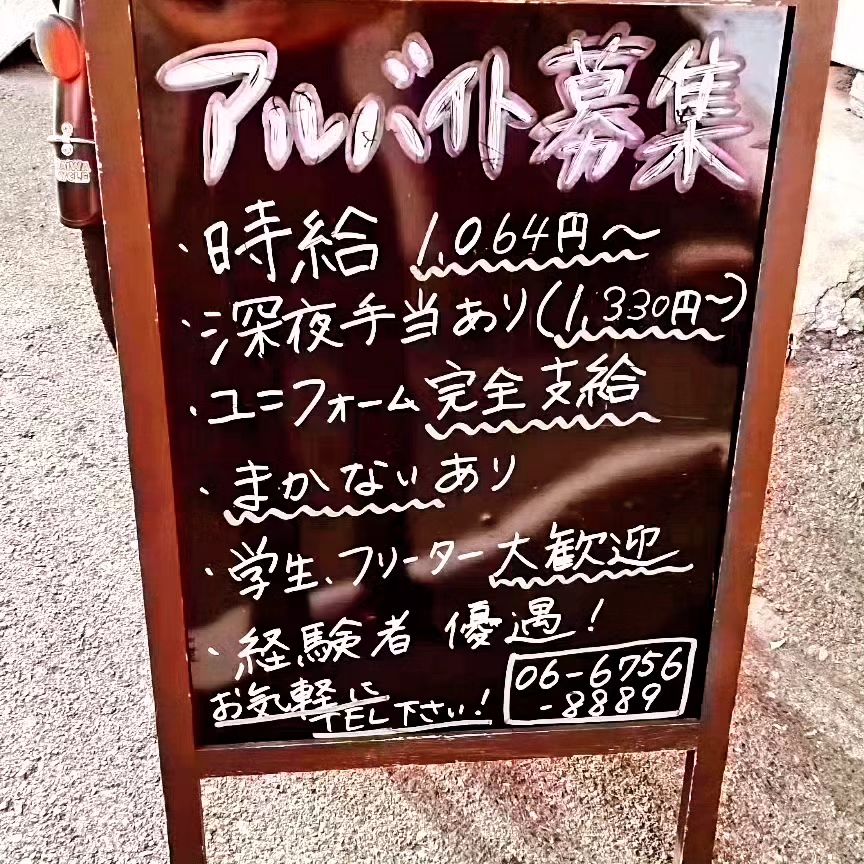 アルバイト募集
・時給 1,064円〜
・深夜手当あり(1,330円〜)
・ユニフォーム完全支給
・まかないあり
・学生、フリーター大歓迎
・経験者 優遇!
お気軽に
TEL下さい!
06-6756
-8889